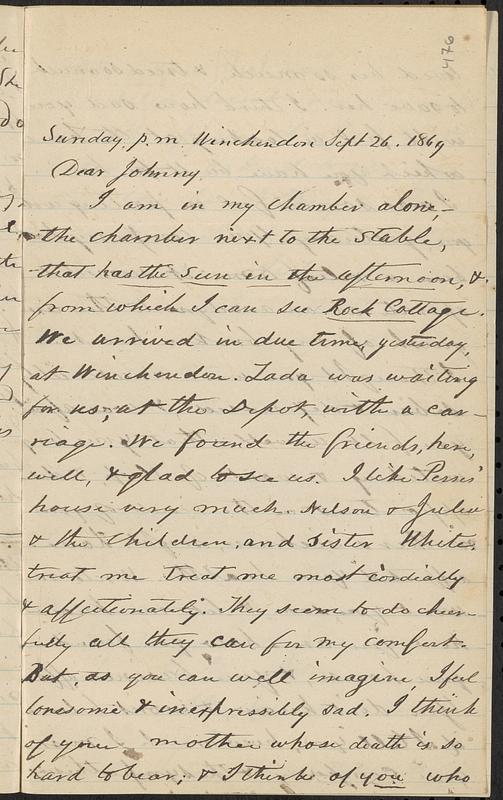 476
Sunday. p.m. Winchendon Sept 26. 1869
Dear Johnny.
I am in my chamber alone,—
the chamber next to the stable,
that has the sun in the afternoon, &
from which I can see Rock Cottage.
We arrived in due time, yesterday,
at Winchendon. Zada was waiting
for us, at the Depot, with a car-
riage. We found the friends, here,
well, & glad to see us. I like Perses'
house very much. Nelson & Julia
& the children, and Sister White,
treat me treat me most cordially
& affectionately. They seem to do cheer-
fully all they can for my comfort.
But, as you can well imagine, I feel
lonesome & inexpressibly sad. I think
of your mother whose death is so
hard to bear; & I think of you who